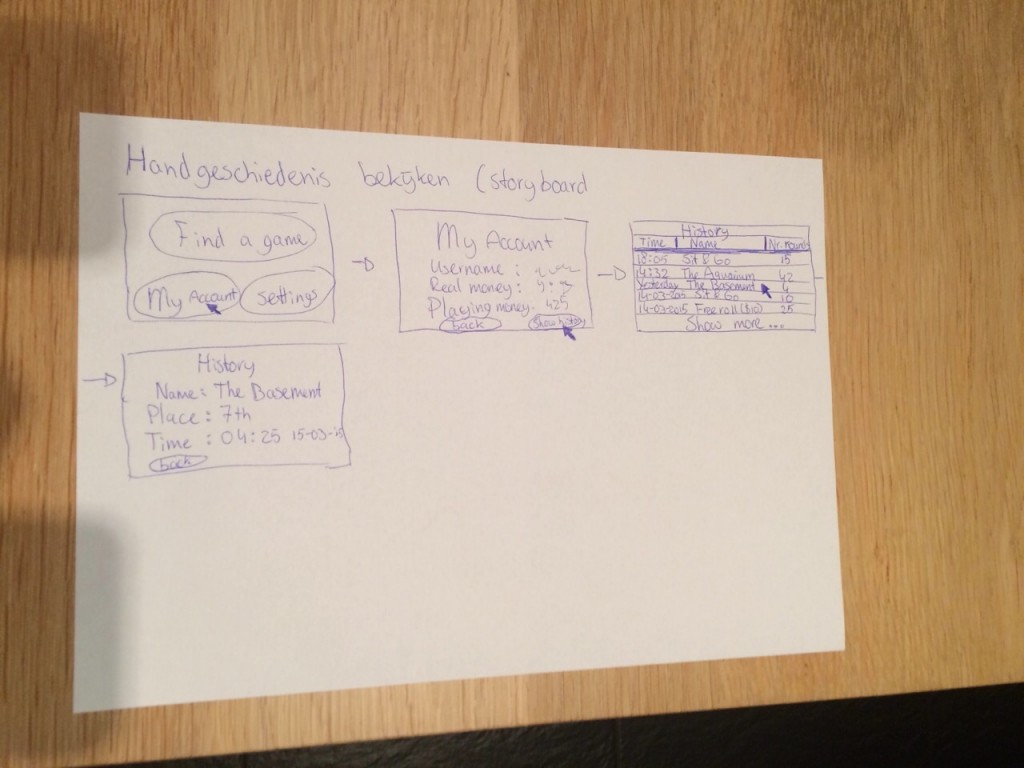 Handgeschiedenis bekijken (storyboard
Find a game
My Account
settings
My Account
Username :
Real money :
Playing money. 425
back
Show history
History
Time Name Nr. rounds
18:05 Sit & Go 15
14:32 The Aquarium 42
Yesterday The Basement 4
14-03-2015 Sit & Go 10
14-03-2015 Freeroll ($10) 25
Show more ...
History
Name: The Basement
Place : 7th
Time : 04:25 15-03-15
back